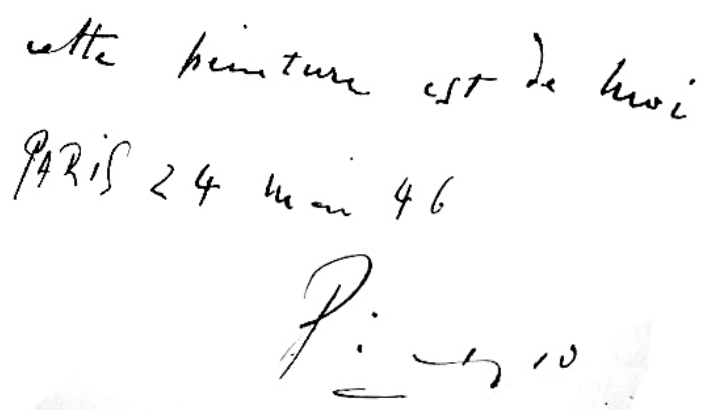 cette peinture est de moi
PARIS 24 mai 46
Picasso